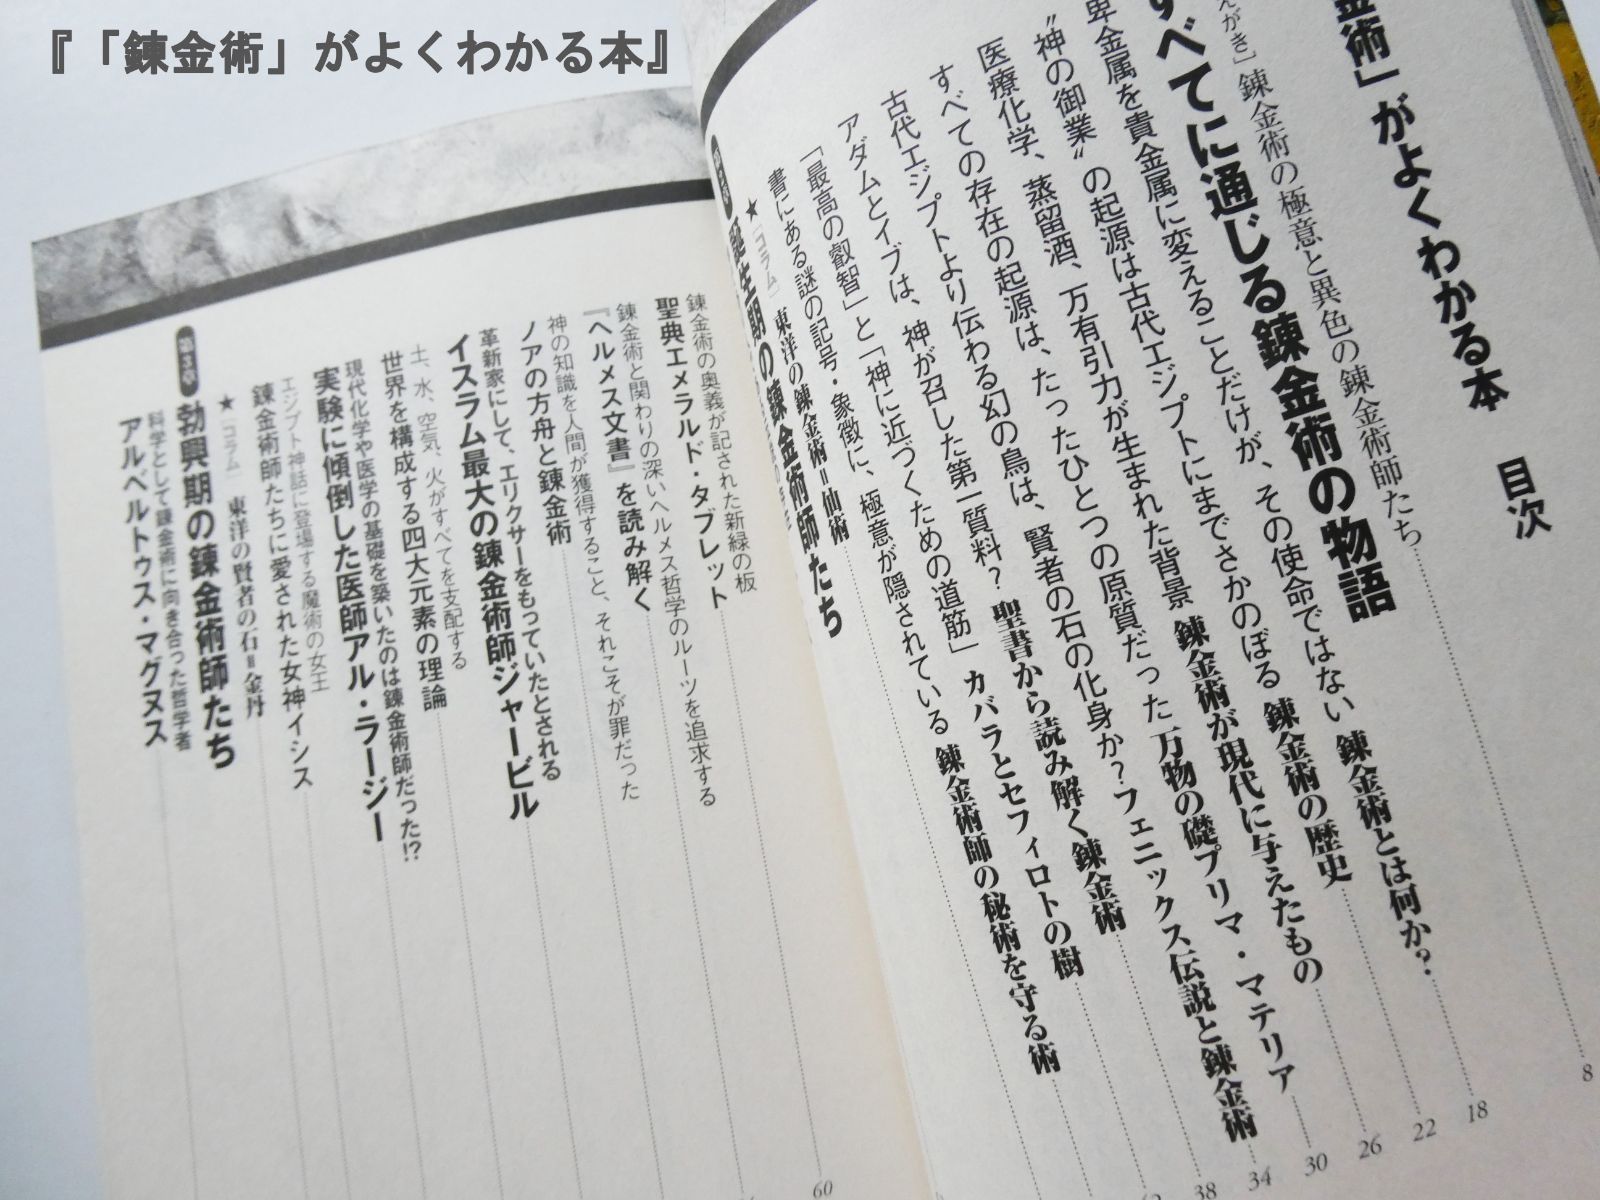 『「錬金術」がよくわかる本』
金術」がよくわかる本　目次
えがき］錬金術の極意と異色の錬金術師たち
8
すべてに通じる錬金術の物語
卑金属を貴金属に変えることだけが、その使命ではない 錬金術とは何か?
18
“神の御業”の起源は古代エジプトにまでさかのぼる 錬金術の歴史
22
医療化学、蒸留酒、万有引力が生まれた背景 錬金術が現代に与えたもの
26
すべての存在の起源は、たったひとつの原質だった 万物の礎プリマ・マテリア
30
古代エジプトより伝わる幻の鳥は、賢者の石の化身か? フェニックス伝説と錬金術
34
アダムとイブは、神が召した第一質料? 聖書から読み解く錬金術
38
「最高の叡智」と「神に近づくための道筋」 カバラとセフィロトの樹
書にある謎の記号・象徴に、極意が隠されている 錬金術師の秘術を守る術
★［コラム］東洋の錬金術＝仙術
誕生期の錬金術師たち
錬金術の奥義が記された新緑の板
聖典エメラルド・タブレット
60
錬金術と関わりの深いヘルメス哲学のルーツを追求する
『ヘルメス文書』を読み解く
神の知識を人間が獲得すること、それこそが罪だった
ノアの方舟と錬金術
革新家にして、エリクサーをもっていたとされる
イスラム最大の錬金術師ジャービル
土、水、空気、火がすべてを支配する
世界を構成する四大元素の理論
現代化学や医学の基礎を築いたのは錬金術師だった!?
実験に傾倒した医師アル・ラージー
エジプト神話に登場する魔術の女王
錬金術師たちに愛された女神イシス
★［コラム］東洋の賢者の石＝金丹
第3章 勃興期の錬金術師たち
科学として錬金術に向き合った哲学者
アルベルトゥス・マグヌス